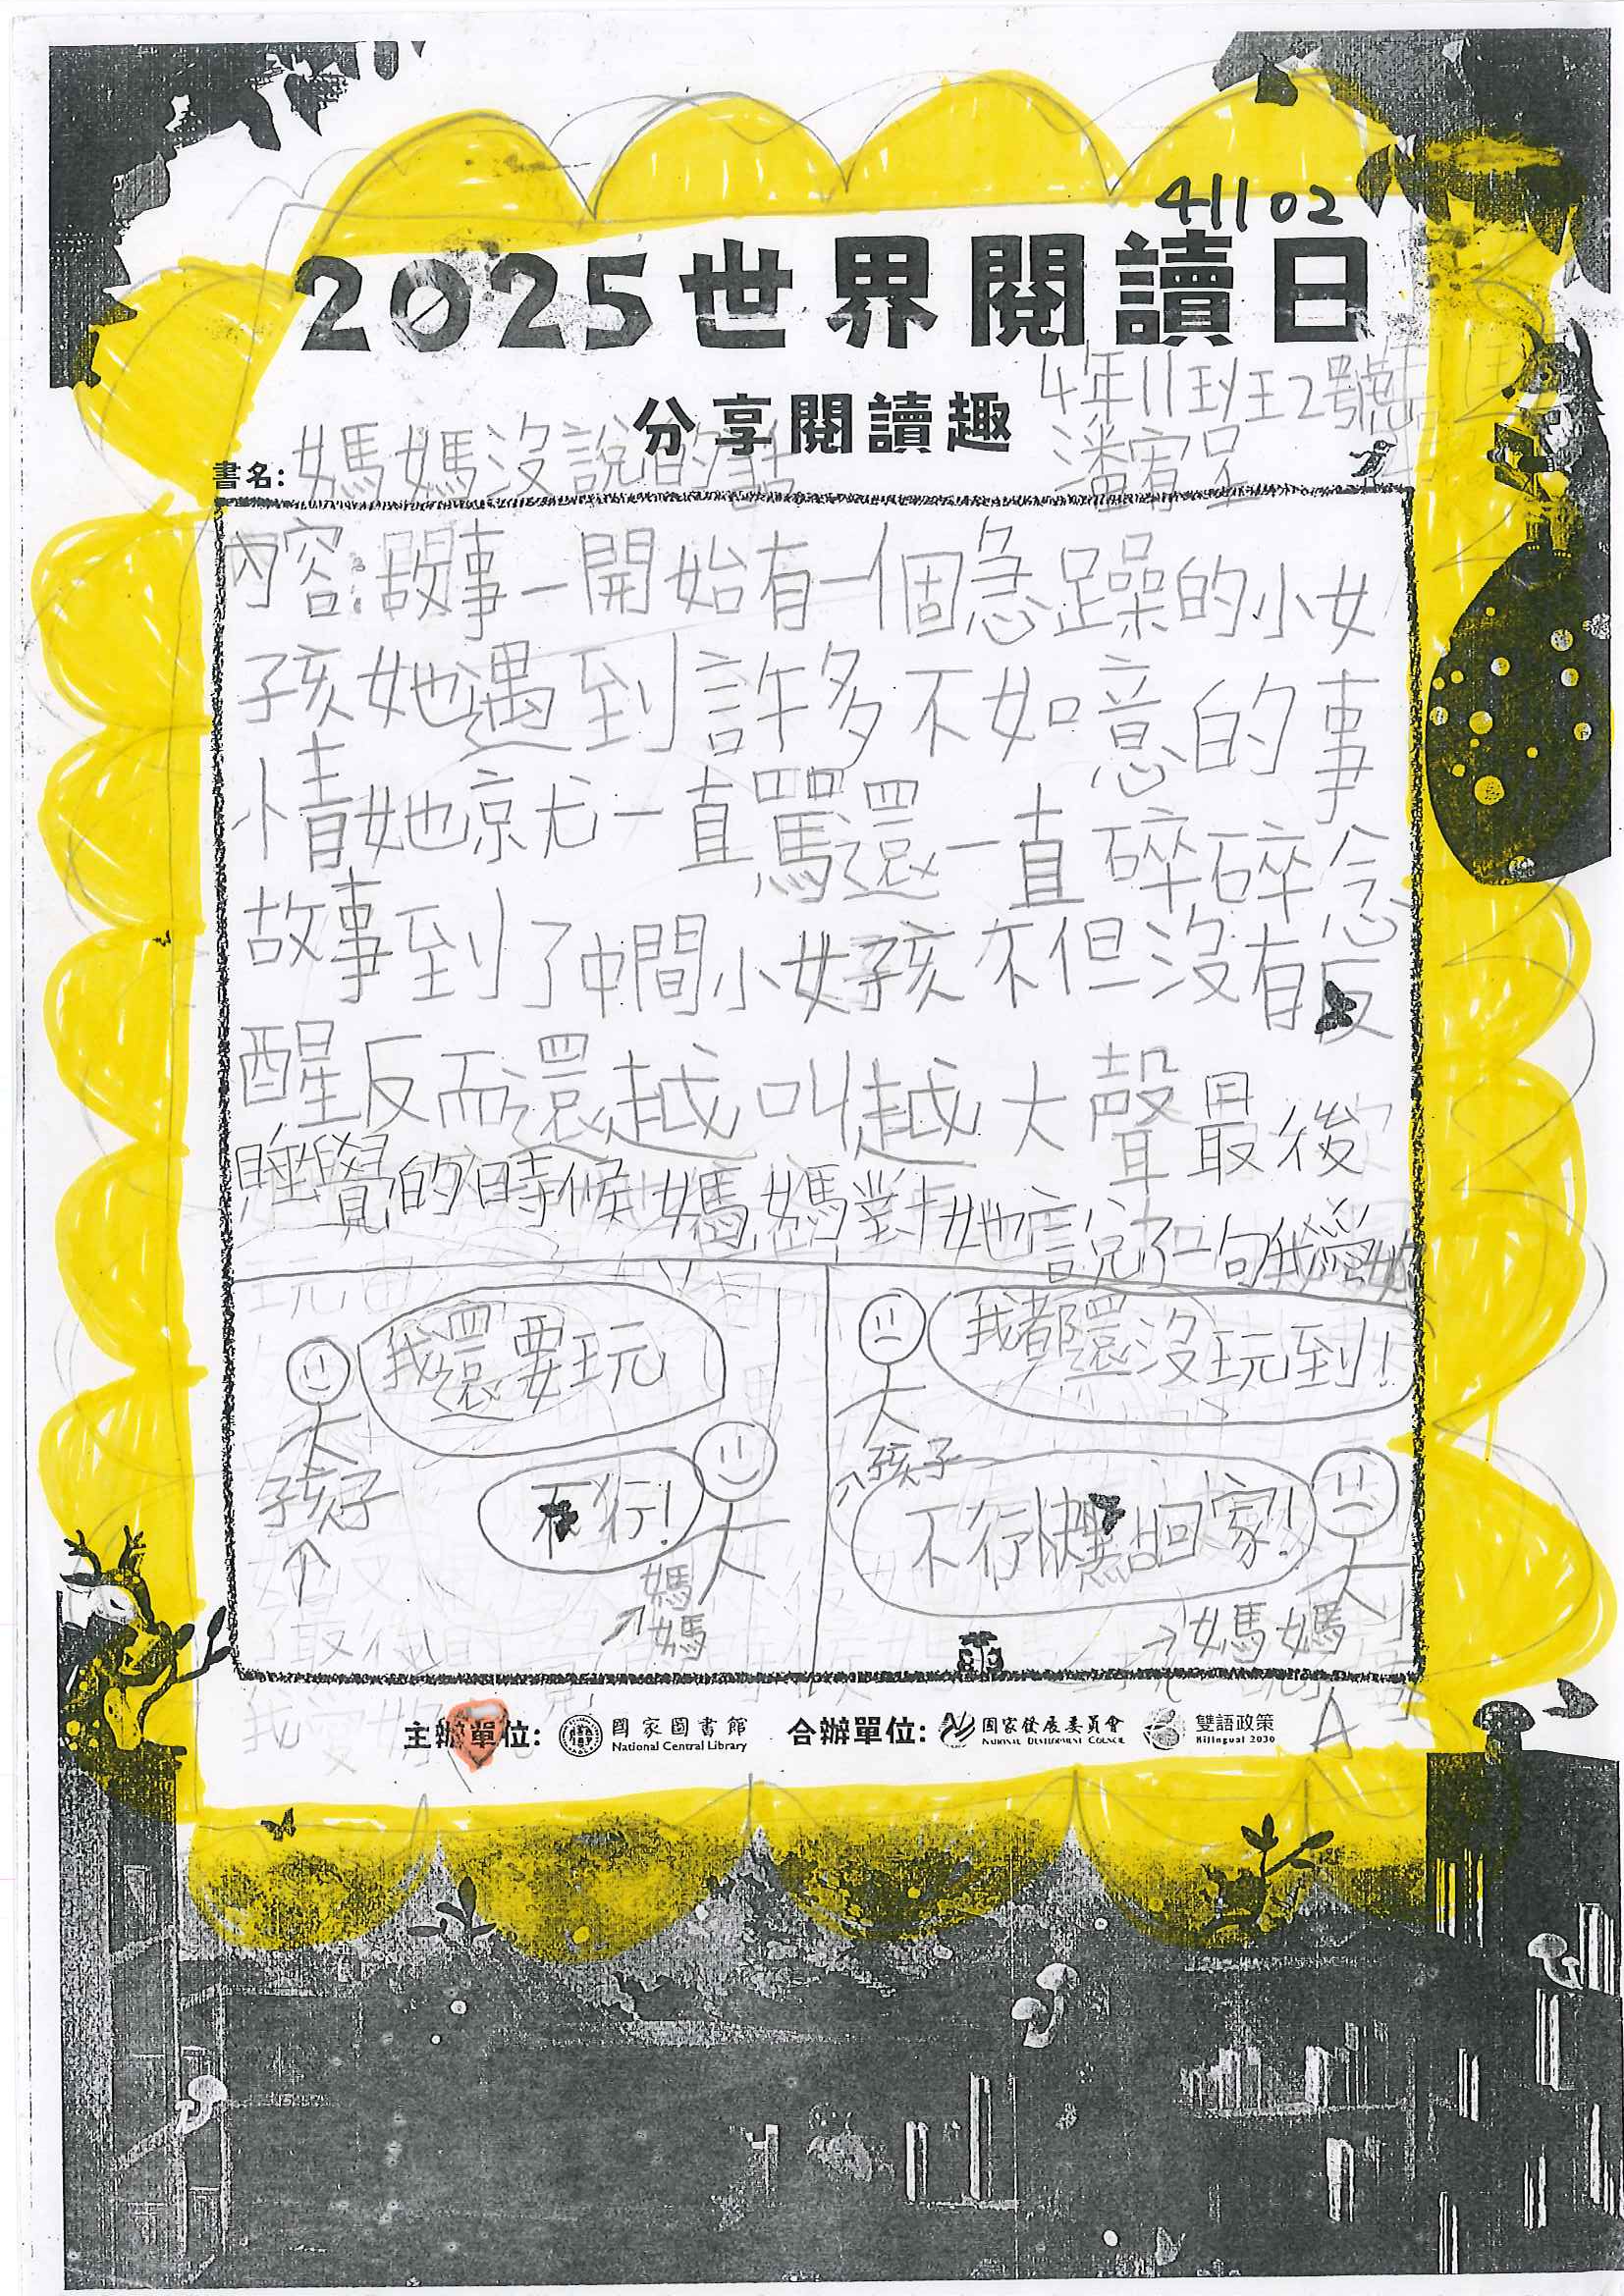 41102
2025世界閱讀日
分享閱讀趣
4年11班2號
潘宥呈
書名:媽媽沒說的話
內容:故事一開始有一個急躁的小女
孩她遇到許多不如意的事
情她就一直罵還一直碎碎念
故事到了中間小女孩不但沒有反
醒反而還越叫越大聲最後
睡覺的時候媽媽對她說了一句我愛妳
我還要玩
不行!
孩子
媽媽
我都還沒玩到!
孩子
不行快點回家!
媽媽
主辦單位: 國家圖書館 National Central Library 合辦單位: 國家發展委員會 National Development Council 雙語政策 Bilingual 2030
A